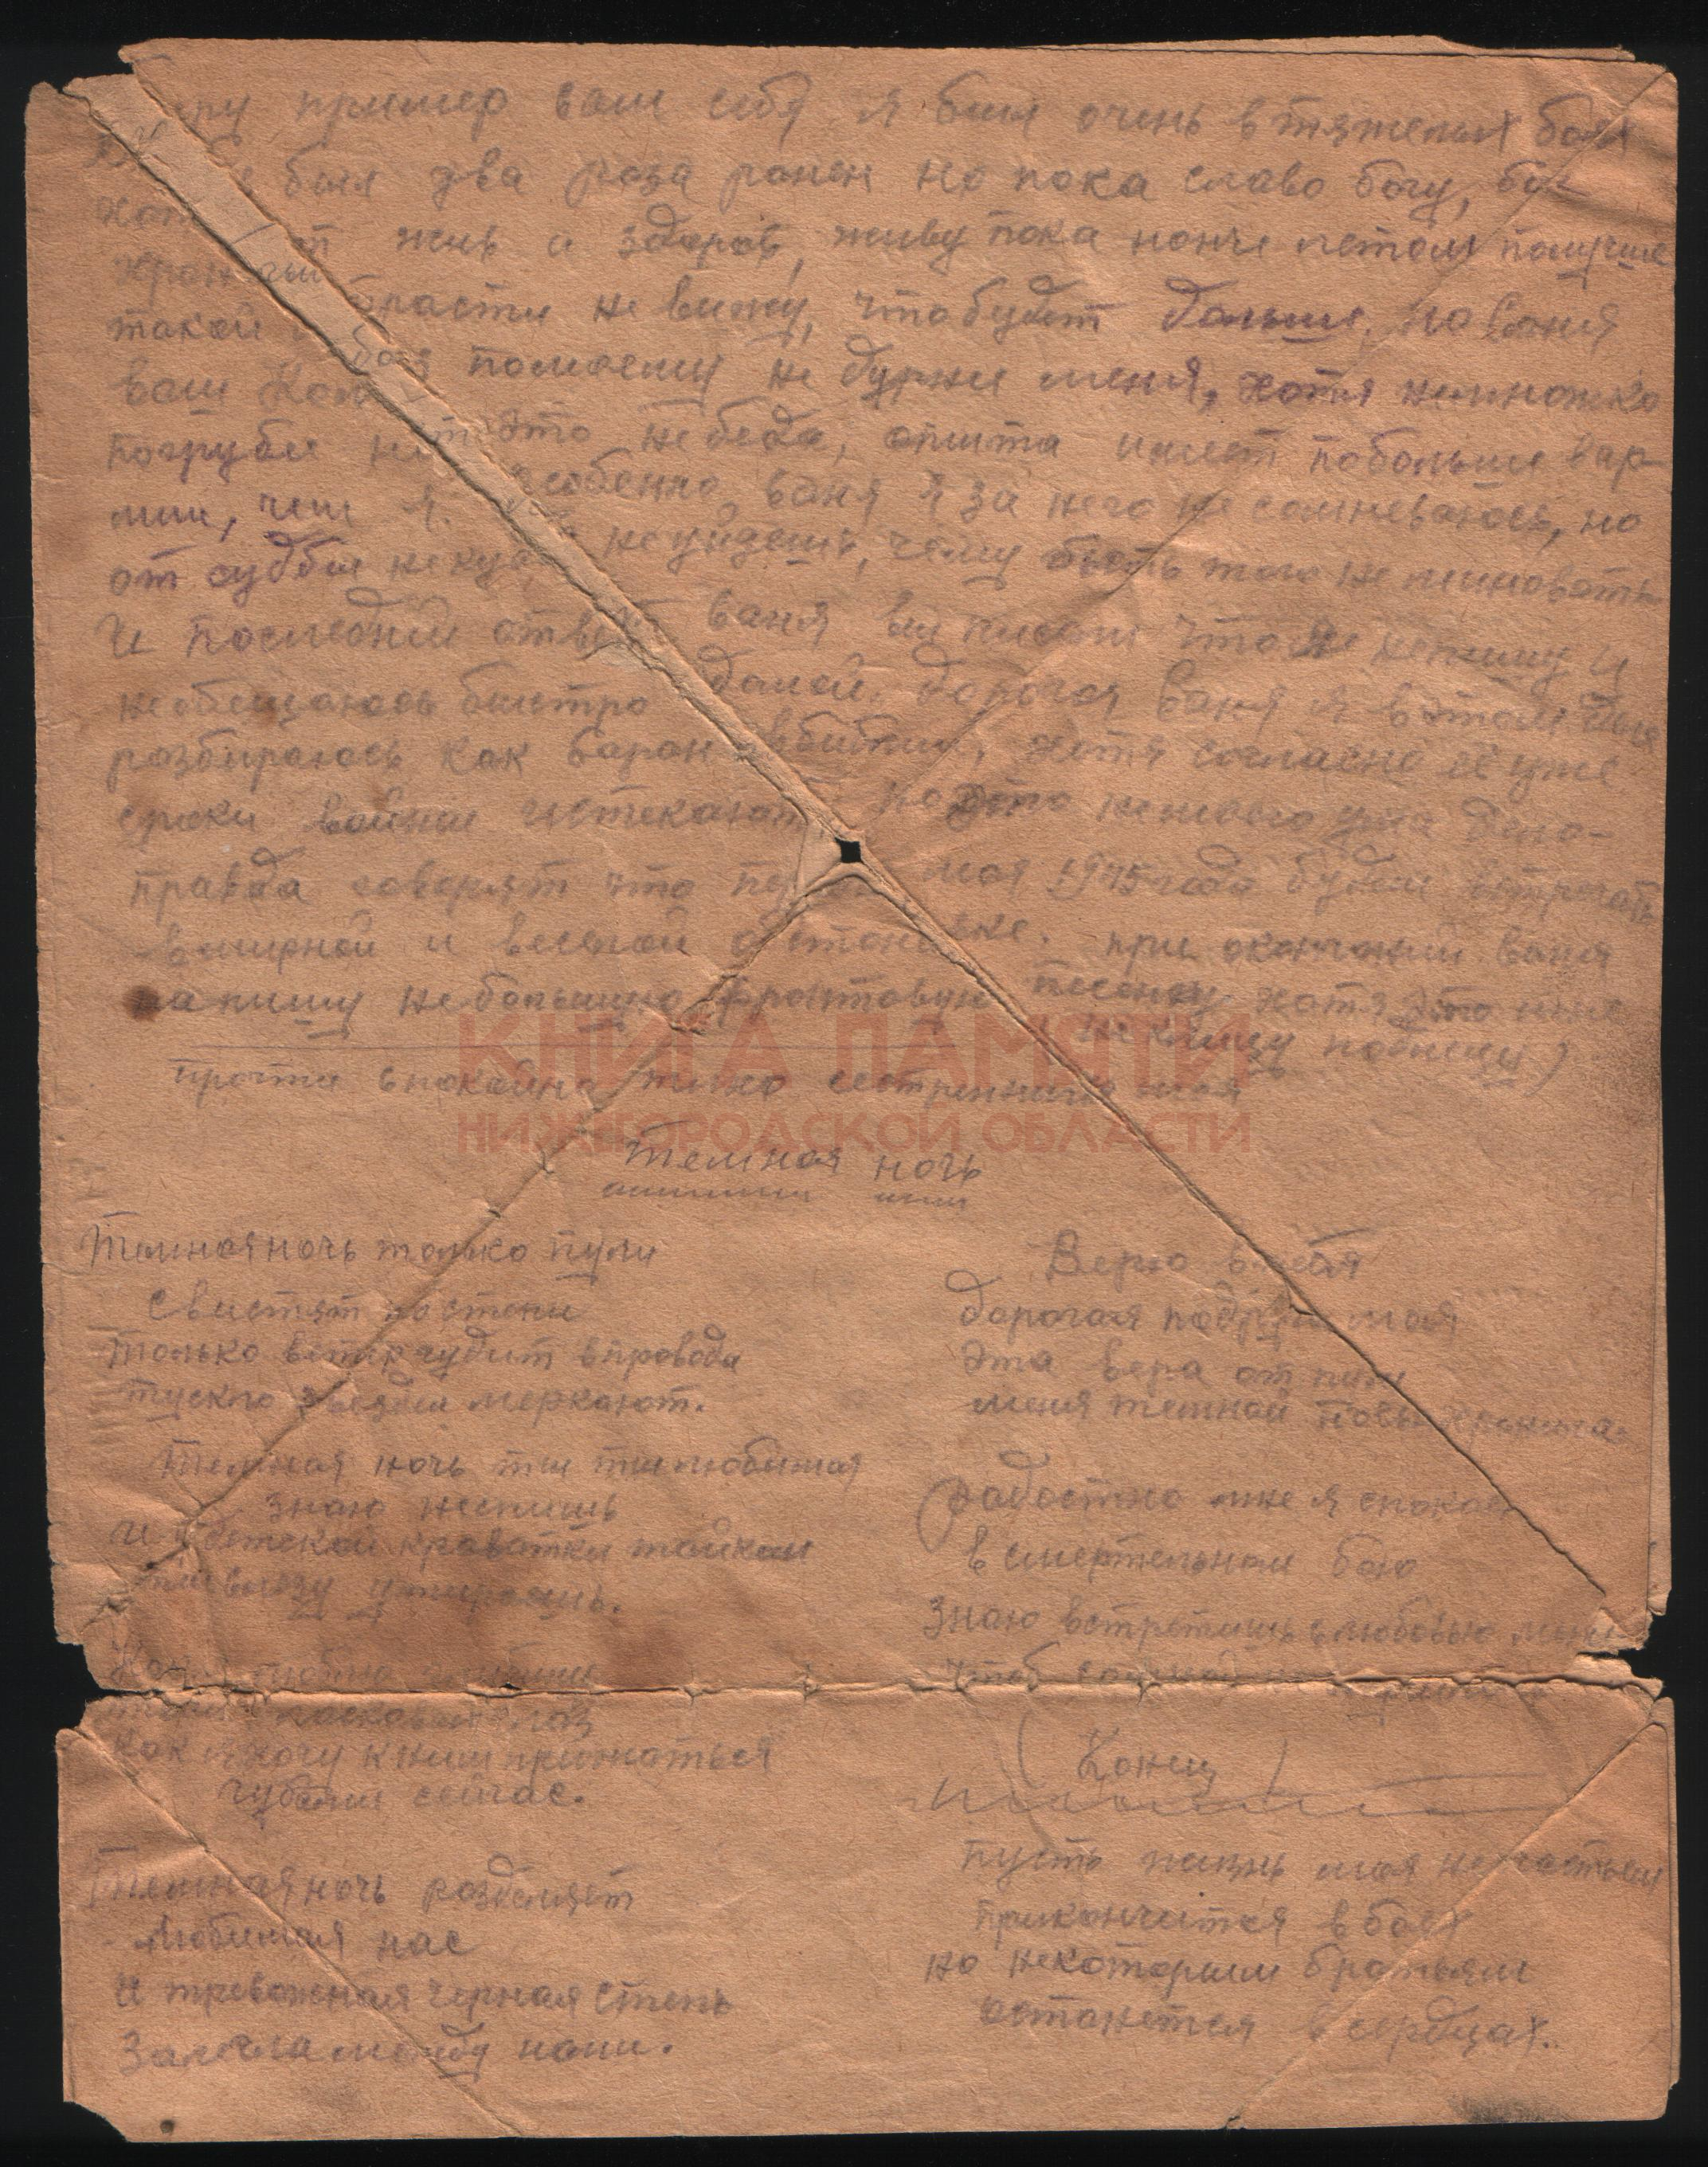 пример ваш себя я был очень в тяжелых боях
был два раза ранен но пока слава богу, бог
жив и здоров, живу пока нонче летом получше
такой страсти не вижу, что будет дальше, но Ваня
ваш Коля помоему не дурне меня, хотя немножко
погрубе это не беда, опыта имеет побольше вар-
мии, чем я. особенно Ваня я за него не сомневаюсь, но
от судьбы некуда не уйдешь, чему быть того не миновать
И последний ответ Ваня вы писали что я не пишу и
не обещаюсь быстро домой, дорогая Ваня я в этом деле
разбираюсь как баран в библии, хотя согласно её уже
сроки войны истекают но это не моего ума дело-
правда говорят что мая 1945 года будем встречать
вмирной и веселой обстановке. при окончании Ваня
напишу небольшую фронтовую песенку хотя это мне
не к лицу но пишу)
прочти спокойно тихо сестренница моя
КНИГА ПАМЯТИ
НИЖЕГОРОДСКОЙ ОБЛАСТИ
Темная ночь
Темная ночь только пули
свистят по степи
только ветер гудит в провода
тускло звезды меркают.
Темная ночь ты ты любимая
знаю не спишь
и у детской краватки тайком
ты слезу утираешь.
люблю глубину
твоих ласковых глаз
Как я хочу к ним прижаться
губами сейчас.
Темная ночь розделяет
Любимая нас
И тревожная черная степь
Залегла между нами.
Верю в тебя
дорогая подруга моя
Эта вера от пули
меня темной ночью хранила.
Радостно мне я спокоен
в смертельном бою
Знаю встретишь с любовью меня
чтоб
(Конец)
Пусть жизнь моя несчастьем
прикончится в боях
но некоторым братьям
останется в сердцах.